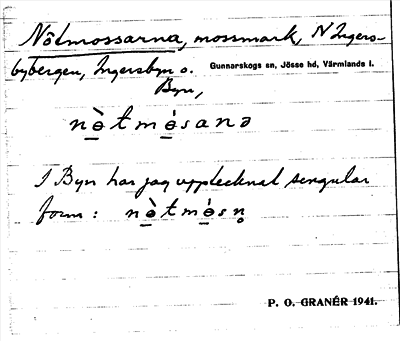 Nötmossarna, mossmark, N Ingers-
bybergen, Ingersbyn o. Gunnarskogs sn, Jösse hd, Värmlands l.
Byn,
nə̠̀tmə̠́sanə
I Byn har jag upptecknat singular
form: nə̠̀tmə̠́sn̥
P. O. GRANÉR 1941.